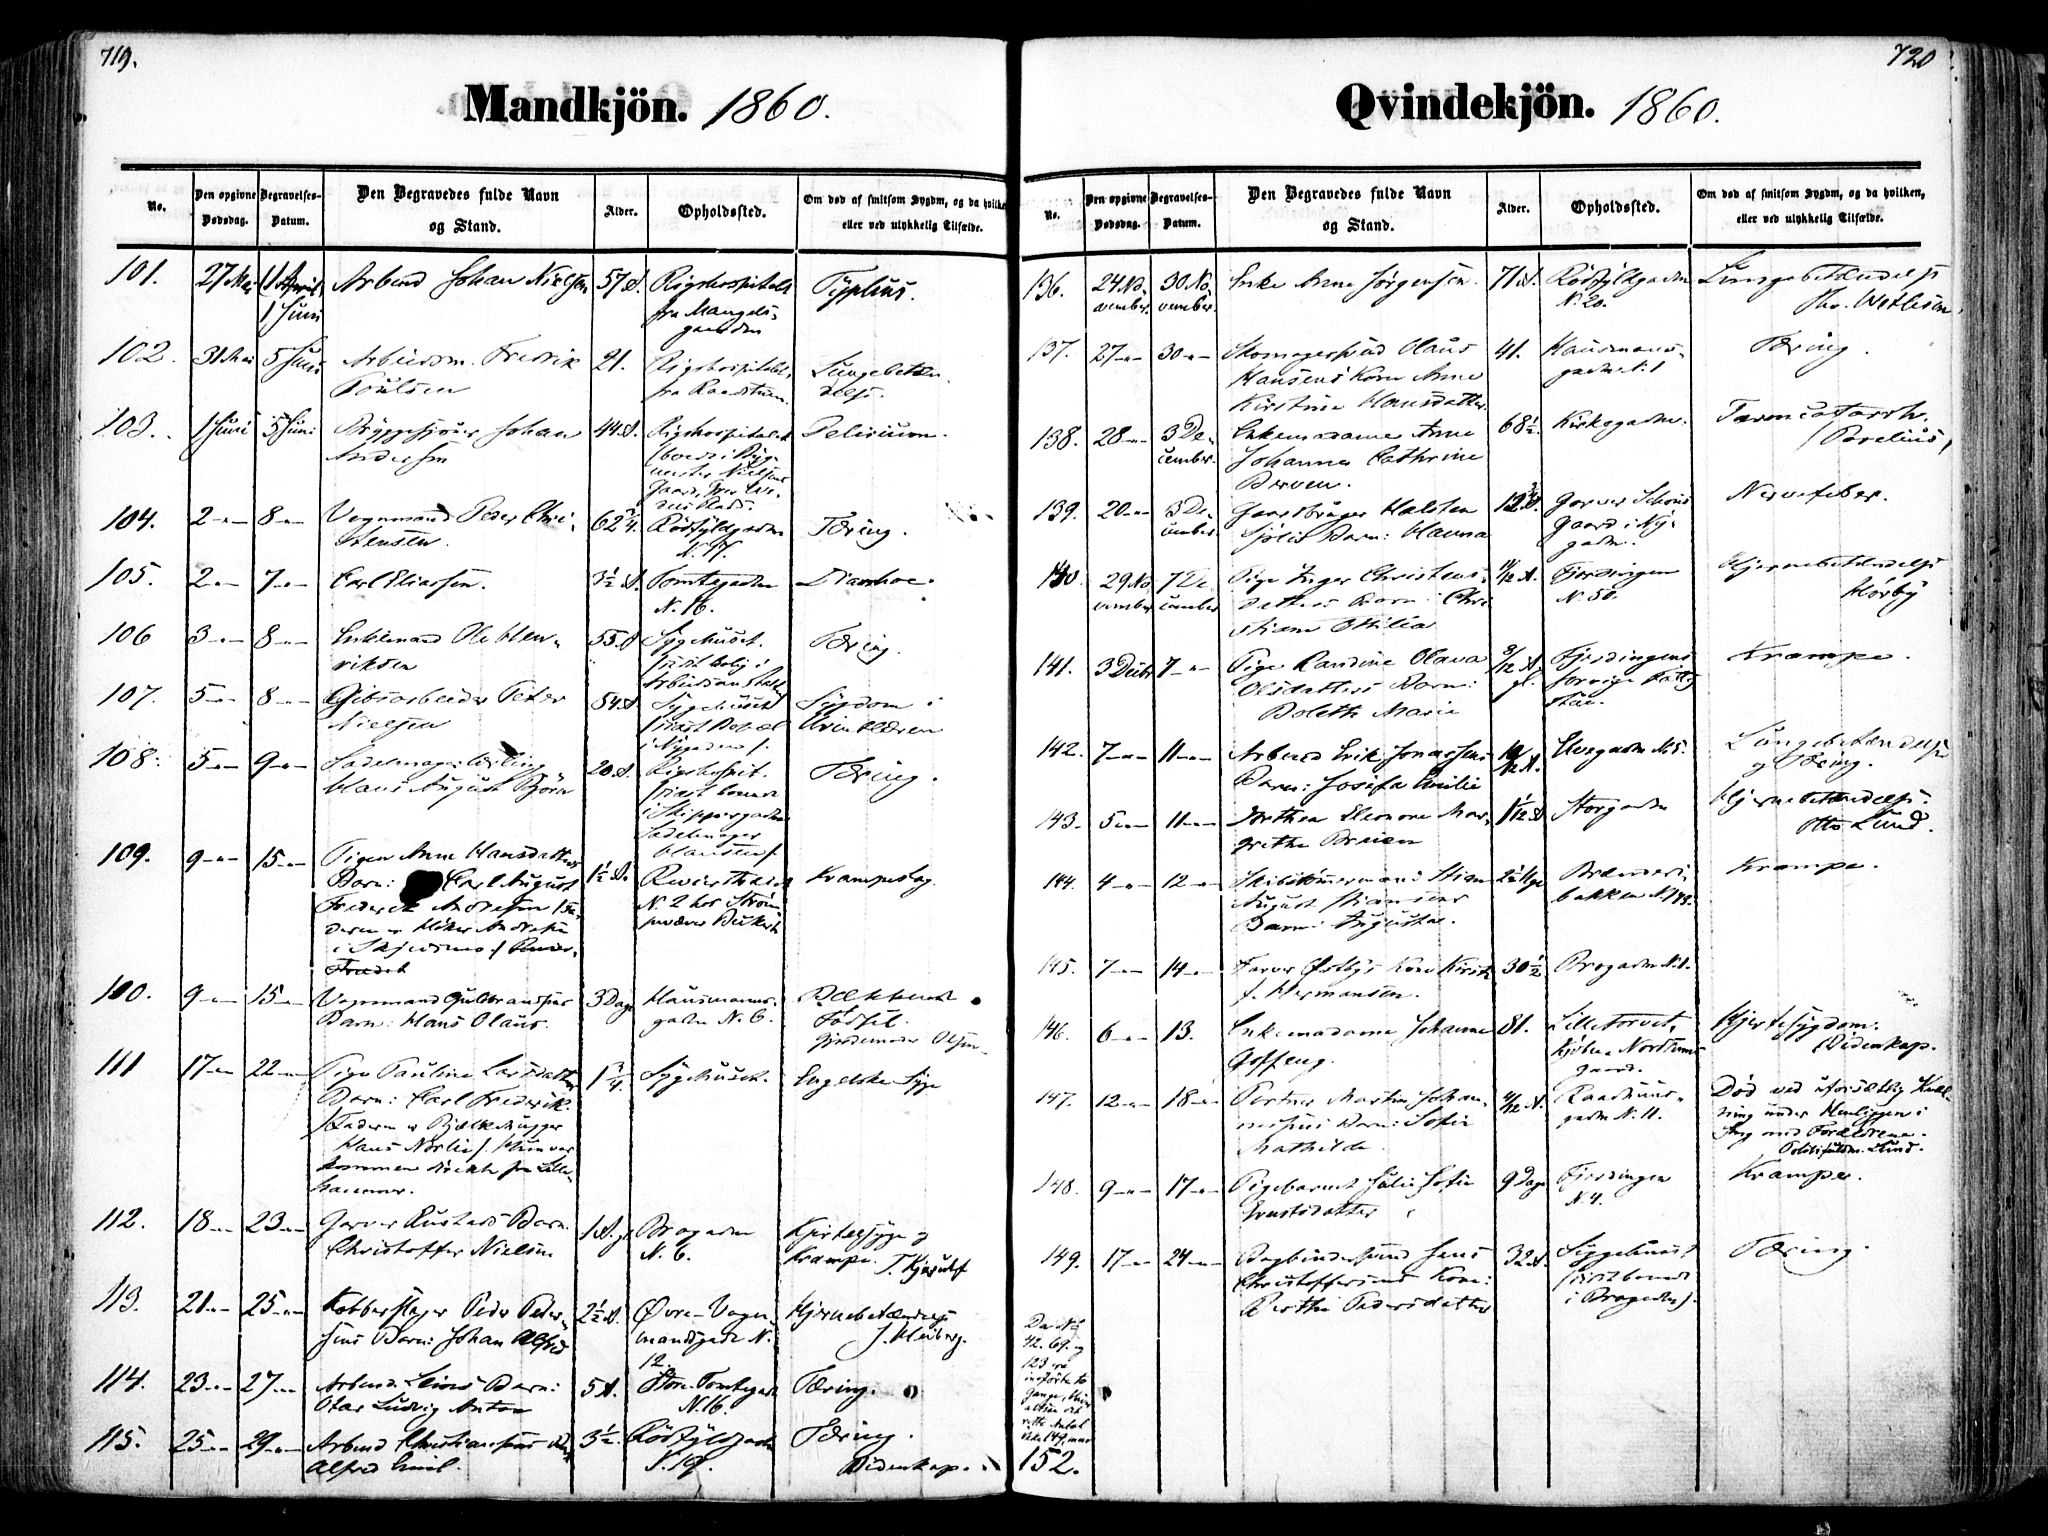 719.
Mandkjön. 1860.
No.
Den opgivne Dødsdag.
Begravelses-Datum.
Den Begravedes fulde Navn og Stand.
Alder.
Opholdssted.
Om død af smitsom Sygdm, og da hvilken, eller ved ulykkelig Tilfælde.
101. 27 Mai 1 Juni Arbmd Johan Nielsen 57 A. Rigshospitalet fra Mangelsgaarden Typhus.
102. 31 Mai 5 Juni Arbeidsm. Fredrik Poulsen 21. Rigshospitalet, fra Lungebetændelse.
103. 1 Juni 5 Juni Bryggesjouer Johan Andersen 44 A. Rigshospitalet Delirium.
104. 2-"- 8-"- Vognmand Peder Christensen 62 Rødfyldgaden N. 47. Tæring.
105. 2-"- 7-"- Carl Eliassen. 3½ A. Tomtegaden N. 16. Diarrhoe.
106 3-"- 8-"- Enkemand Ole Henriksen 55 A Sygehuset. Tæring.
107. 5-"- 8-"- Gibsarbeider Peter Nielsen 54 A Sygehuset Sygdom i
108. 5-"- 9-"- Sadelmagerlærling Hans August Björn 20 A. Rigshospit. i Skippergaden Sadelmager Hansen). Tæring.
109. 9-"- 15-"- Pigen Anne Hansdatters Barn: Carl August Frederik Andersen 1½ A. N. 2 hos Krampeslag
100. 9-"- 15-"- Vognmand Gulbransens Barn: Hans Olaus. 3 Dage Hausmannsgaden N. 6. Fødsel. Gjordemoder Olsen
111 17-"- 22-"- Pige Pauline Larsdatters Barn: Carl Frederik. (Faderen er Bjelkehugger Hans Norlie). Hun var kommen direkte fra Lillehammer. 1 Sygehuset. Engelske Syge
112. 18-"- 23-"- Garver Rustads Barn: Christoffer Nielsen 1 A. gl Brogaden N. 6. Kjertelsyge og Krampe. T. Kjerulf
113. 21-"- 25-"- Kobberslager Peder Pedersens Barn: Johan Alfred 2½ A. Øvre-Vognmandsgade N. 12. Hjernebetændelse J. Heiberg.
114. 23-"- 27-"- Arbmd Barn: Otar Ludvig Anton 5 A. Store-Tomtegade N. 16. Tæring.
115. 25-"- 29-"- Arbmd Christiansens Barn Alfred Emil. 3½. Rødfyldgaden Tæring. Bidenkap.
720
Qvindekjön. 1860.
No.
Den opgivne Dødsdag.
Begravelses-Datum.
Den Begravedes fulde Navn og Stand.
Alder.
Opholdssted.
Om død af smitsom Sygdm, og da hvilken, eller ved ulykkelig Tilfælde.
136. 24 November. 30 November. Enke Anne Jørgensen. 71 A. Rødfyldgaden N. 20. Lungebetændelse
137. 27-"- 30-"- Skomagersvend Olaus Hansens Kone Anne Kirstine Hansdatter. 41. Hausmannsgaden N. 1 Tæring.
138. 28-"- 3 December. Enkemadame Anne Johanne Cathrine Berven. 68½. Kirkegaden. Tarmcatarrh.
139. 20-"- 3 December Gaardbruger Halsten Sjølis Barn: Hanna 12 Garver Schous Gaard i Nygaden. Nervefeber.
140. 29 November 7 December Pige Inger Christensdatters Barn: Christiane Ottilia 11/12 A. Fjerdingen N. 50. Hjernebetændelse Hörby
141. 3 Decbr 7-"- Pige Randine Olava Olsdatters Barn: Boleth Marie 3/12 A. gl. Fjerdingens forrige Krampe.
142. 7-"- 11-"- Arbmd Erik Jonassens Barn: Josefa Emilie Elvegaden N. 5. Lungebetændelse og Tæring.
143. 5-"- 11-"- Dorthea Eleonore Margrethe Bruen 1 1/12 A Storgaden Hjernebetændelse. Otto Lund.
144. 4-"- 12-"- Skibstømmermand Stian August Stiansens Barn: Augusta. Brænderibakken N. 149. Krampe.
145. 7-"- 14-"- Farver Østbys Kone f. Hermansen. 30½ Brogaden N. 1.
146. 6-"- 13. Enkemadame Johanne Goffeng. 81. Lilletorvet, Hjertesygdom. Bidenkap.
147. 12-"- 18-"- Portner Martin Johannesens Barn: Sofie Mathilde 4/12 A. Raadhuusgaden N. 11. Død ved uforsætlig Kvælning under Henliggen i Seng med Forældrene. Lund.
148. 9-"- 17-"- Pigebarnet Julie Sofie 9 Dage Fjerdingen N. 4. Krampe.
149. 17-"- 24-"- Bogbindersvend Jens Christoffersens Kone: Berthe Pedersdatter 32 A. Sygehuset i Brogaden). Tæring.
Da No 42. 69. og 123 ere indførte to Gange, bliver altsaa det rette Antal ikke 149, men 152.